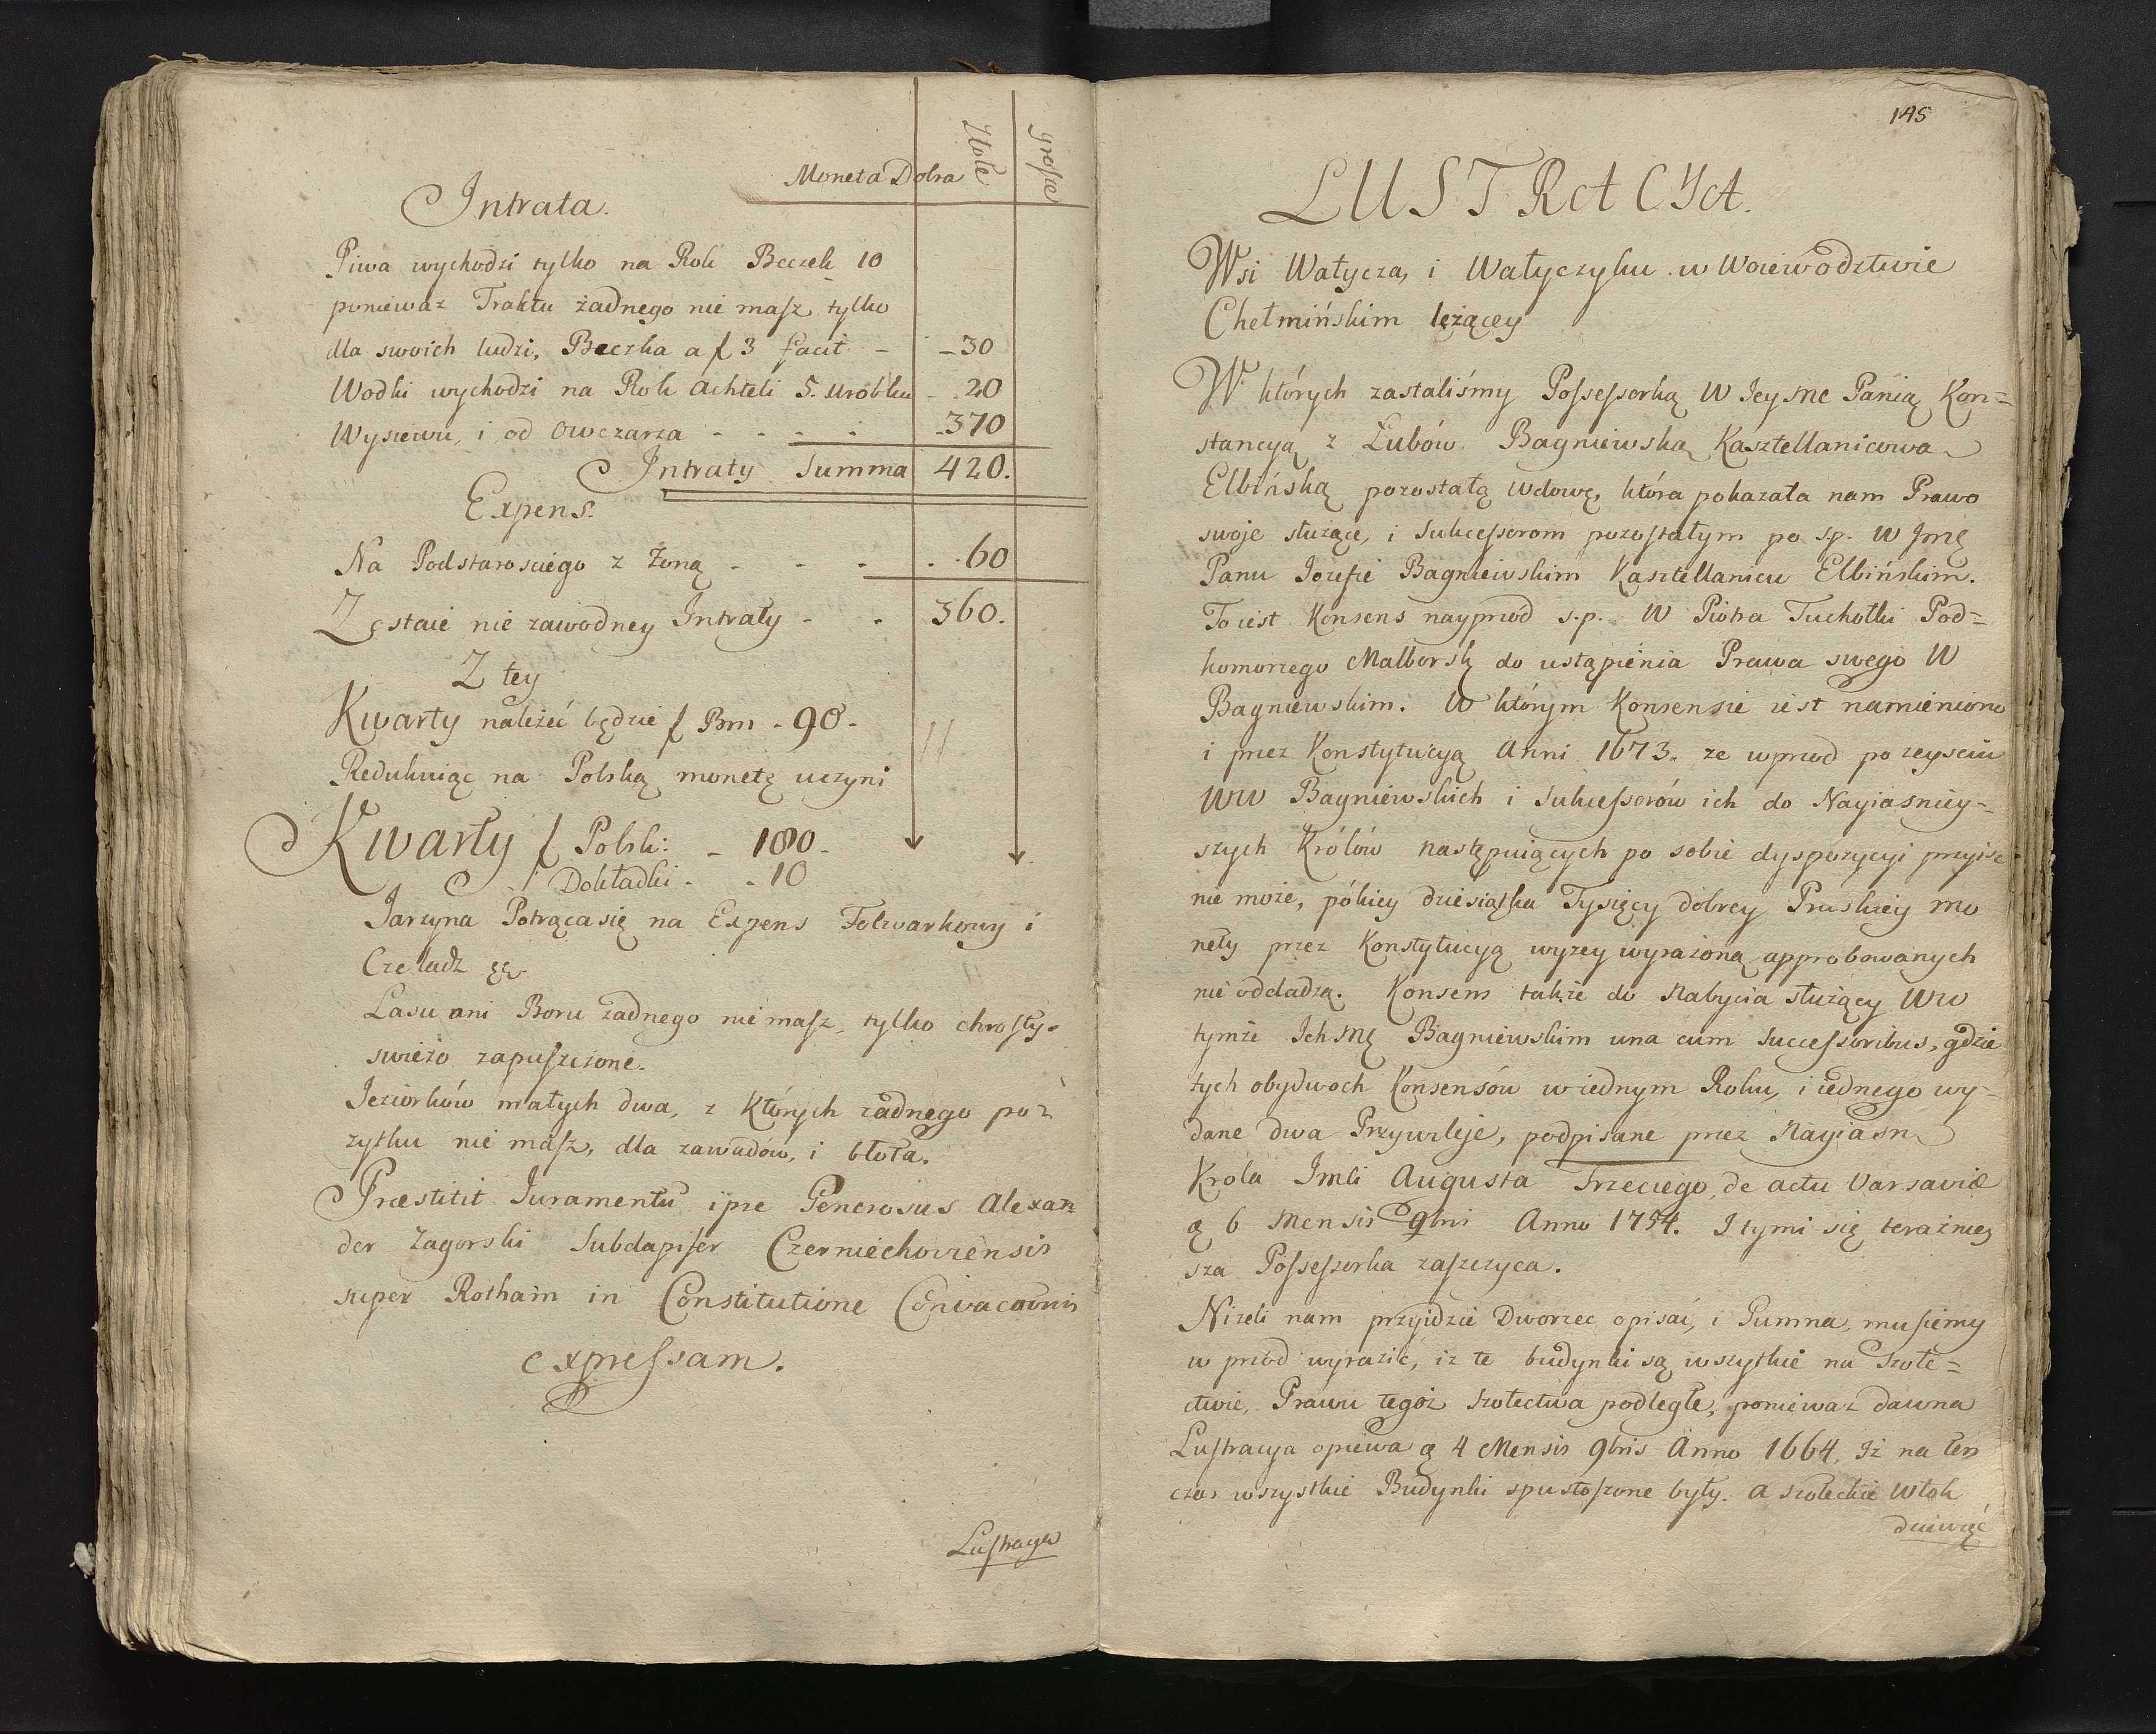 Moneta Dobra
Złote
grosze
Intrata.
Piwa wychodzi tylko na Rok Beczek 10
ponieważ Traktu żadnego nie masz tylko
dla swoich ludzi, Beczka a f 3 facit - -30
Wodki wychodzi na Rok Achteli 5. urobku - .20
Wysiewu, i od Owczarza - - - - -370
Intraty Summa 420.
Expens.
Na Podstarosciego z Żoną - - - . .60
Zostaie nie zawodney Intraty - . 360.
Z tey
Kwarty należeć będzie f Bm - 90 -
Redukuiąc na Polską monetę uczyni
Kwarty f Polsk: - 180 -
Dokładki - . 10
Jarzyna Potrąca się na Expens Folwarkowy i
Czeladz
Lasu ani Boru żadnego nie masz, tylko chrosty
swieżo zapuszczone.
Jeziorków małych dwa, z których żadnego po=
zytku nie masz, dla zawadów, i błota.
Præstitit Juramentũ ipse Generosus Alexan=
der Zagorski Subdapifer Czerniechoviensis
super Rotham in Constitutione Convocãonis
expressam.
Lustracya
145
LUSTRACYA.
Wsi Wałycza, i Wałyczyku w Woiewództwie
Chełmińskim leżącey
W których zastaliśmy Possessorką W Jey Mc Panią Kon=
stancyą z Łubów Bagniewską Kasztellanicową
Elbińską pozostałą Wdowę, która pokazała nam Prawo
swoje służące, i Sukcessorom pozostałym po s.p. W Jmę
Panu Jozefie Bagniewskim Kasztellanicu Elbińskim.
To iest Konsens nayprzód s.p. W Piotra Tuchołki Pod=
komorzego Malborsk do ustąpienia Prawa swego W
Bagniewskim. W którym Konsensie iest namieniono
i przez Konstytucyą Anni 1673. ze wprzod po zeysciu
WW Bagniewskich i Sukcessorów ich do Nayiasniey=
szych Królów następuiących po sobie dyspozycyi przyisc
nie może, pókiey dziesiątka Tysięcy dobrey Pruskiey mo
nety przez Konstytucyą wyzey wyrażoną approbowanych
nie oddadzą. Konsens także do Nabycia służący WW
tymże Ich Mę Bagniewskim una cum Successoribus, gdzie
tych obydwoch Konsensów w iednym Roku, i iednego wy=
dane dwa Przywileje, podpisane przez Nayiasn
Krola Jmći Augusta Trzeciego, de actu Varsaviæ
6 Mensis 9bris Anno 1754. I tymi się teraźniey
sza Possessorka zaszczyca.
Nizeli nam przyidzie Dworzec opisać, i Gumna, musiemy
w przód wyrazić, iz te budynki są wszytkie na Szołe=
ctwie, Prawu tegoż Szołectwa podległe, ponieważ dawna
Lustracya opiewa 4 Mensis 9bris Anno 1664. Iż na ten
czas wszystkie Budynki spustoszone były. a szołeckie Włok
dziewięć